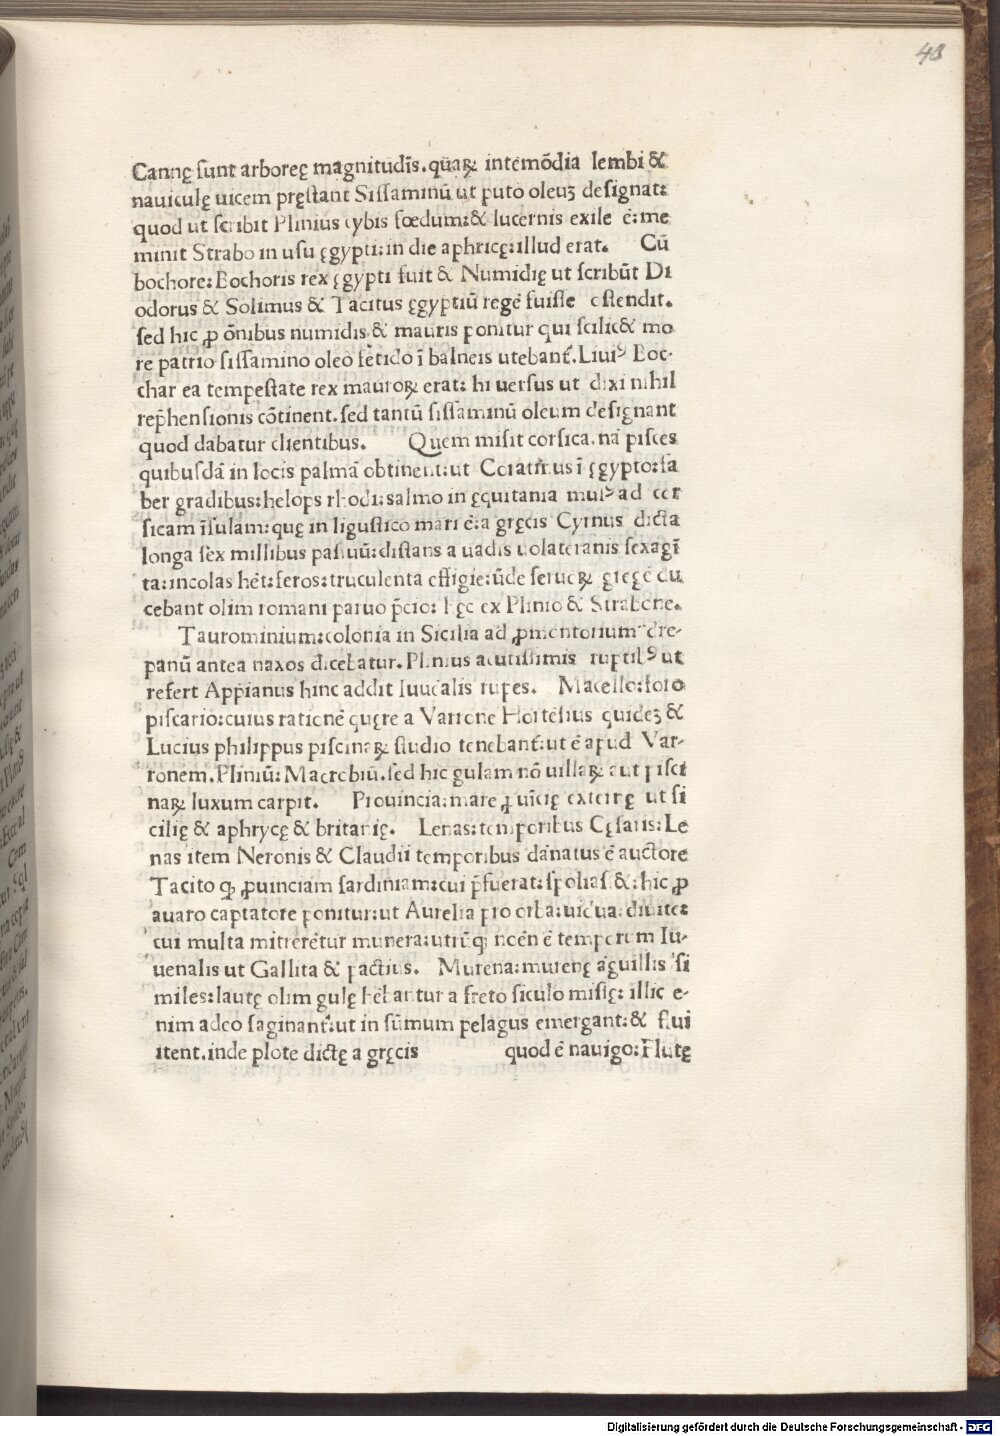 43
Cannę sunt arboreę magnitudīs. quaꝝ intemōdia lembi &
nauiculę uicem pręstant Sissaminū ut puto oleuꝫ designat:
quod ut scribit Plinius cybis fœdum: & lucernis exile ē: me
minit Strabo in usu ęgypti: in die aphricę: illud erat. Cū
bochore: Bochoris rex ęgypti fuit & Numidię ut scribūt Di
odorus & Solimus & Tacitus ęgyptiū regē fuisse ostendit.
sed hic ꝓ oīnibus numidis & mauris ponitur qui scilic& mo
re patrio sissamino oleo fętido ī balneis utebant. Liuiꝰ Boc-
char ea tempestate rex mauroꝝ erat: hi uersus ut dixi nihil
rephensionis cōtinent. sed tantū sissaminū oleum designant
quod dabatur clientibus. Quem misit corsica. nā pisces
quibusdā in locis palmā obtinent: ut Coratinus ī ęgypto: fa
ber gradibus: helops rhodi: salmo in ęquitania muiꝰ ad cor
sicam īsulam: quę in ligustico mari ē: a gręcis Cyrnus dicta
longa sex millibus passuū: distans a uadis uolateranis sexagī
ta: incolas hēt: feros: truculenta effigie: ūde seruoꝝ gregē du
cebant olim romani paruo p̄cio: hęc ex Plinio & Strabone.
Taurominium: colonia in Sicilia ad ꝓmentorium dre-
panū antea naxos dicebatur. Plinius acutissimis ruptilꝰ ut
refert Appianus hinc addit Iuuēalis rupes. Macello: foro
piscario: cuius rationē quęre a Varrone Hortēsius quideꝫ &
Lucius philippus piscinaꝝ studio tenebant: ut ē apud Var-
ronem. Pliniū: Macrobiū. sed hic gulam nō uillaꝝ aut pisci
naꝝ luxum carpit. Prouincia: mare ꝓuīcię exterię ut si
cilię & aphrycę & britanię. Lenas: temporibus Cęsaris: Le
nas item Neronis & Claudii temporibus dānatus ē auctore
Tacito ꝙ ꝓuinciam sardiniam: cui p̄fuerat: spolias&: hic ꝓ
auaro captatore ponitur: ut Aurelia pro orba: uidua: diuite:
cui multa mitterētur munera: utrūqꝫ noēn ē temporum Iu-
uenalis ut Gallita & pactius. Murena: murenę āguillis si
miles: lautę olim gulę hēbantur a freto siculo misię: illic e-
nim adeo saginant: ut in sūmum pelagus emergant: & flui
itent. inde plote dictę a gręcis quod ē nauigo: Flutę
Digitalisierung gefördert durch die Deutsche Forschungsgemeinschaft - DFG